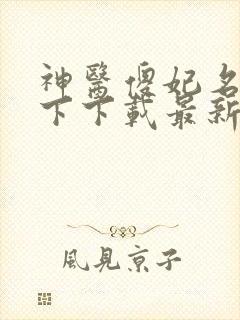 神醫傻妃名
下下載最新
風見京子